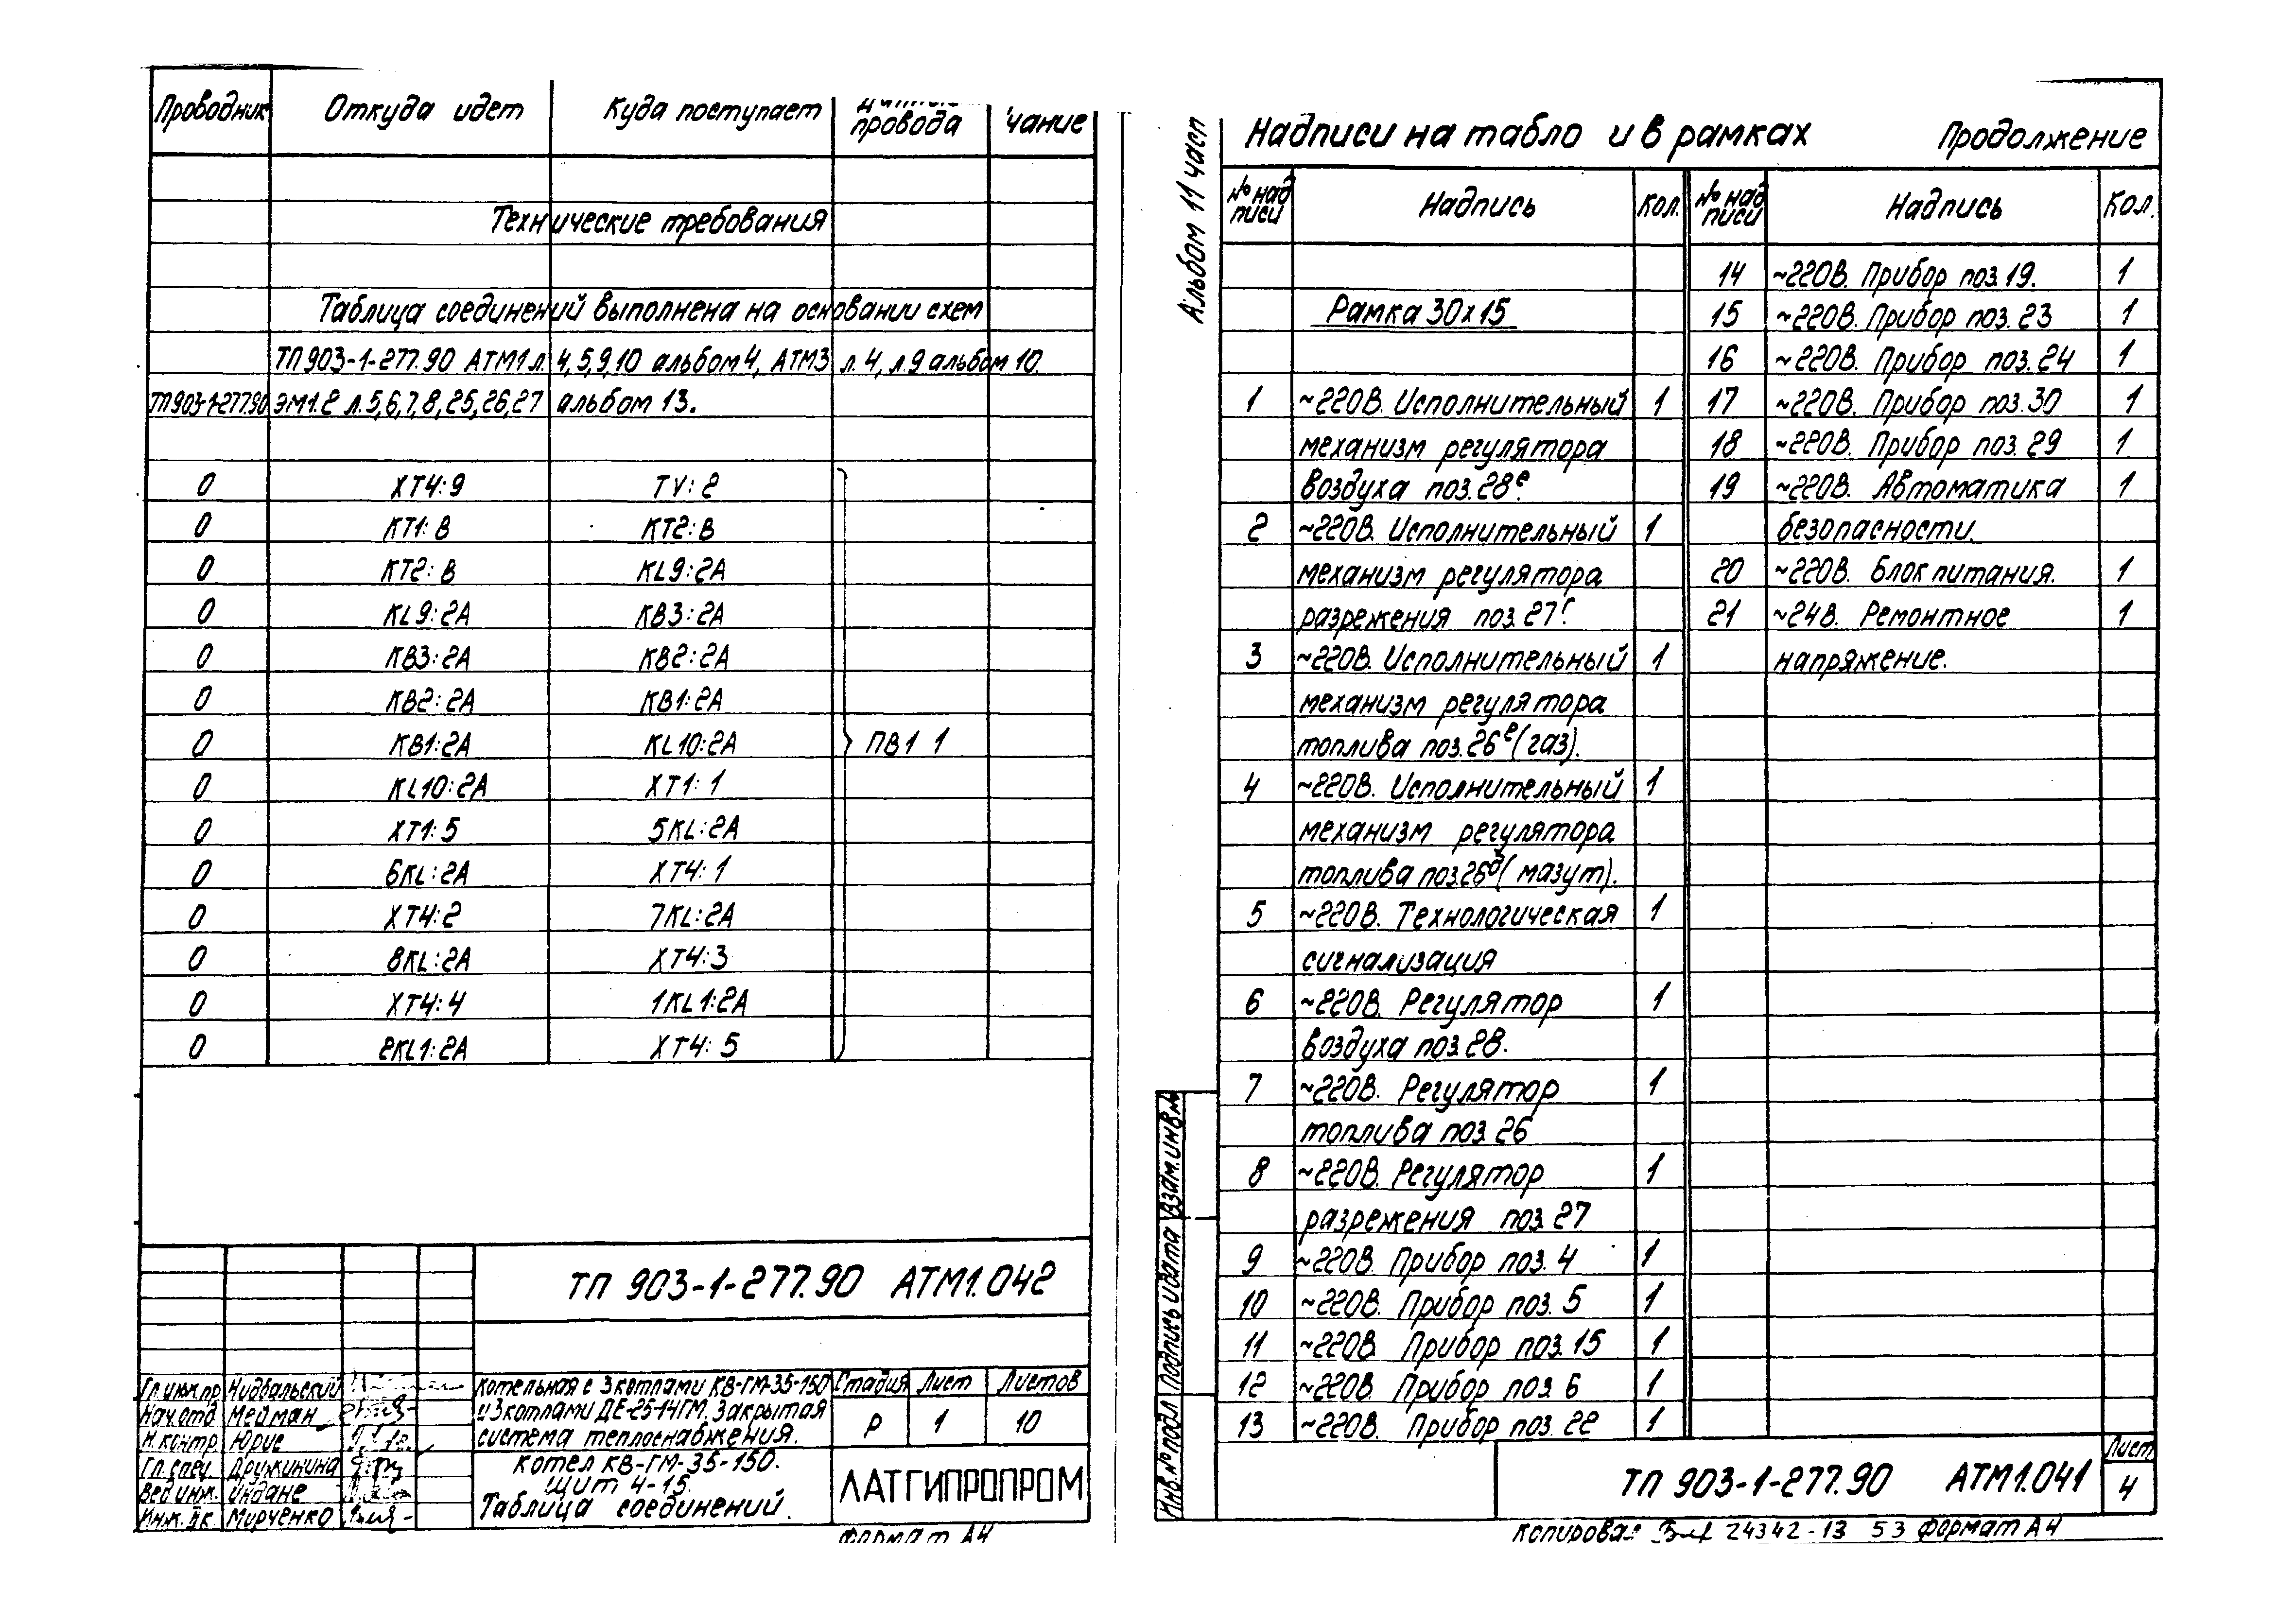 Проводник Откуда идет Куда поступает провода чание
Технические требования
Таблица соединений выполнена на основании схем
ТП903-1-277.90 АТМ1 л. 4,5,9,10 альбом 4, АТМ3 л.4, л.9 альбом 10.
ТП903-1-277.90 ЭМ1.2 л.5,6,7,8,25,26,27 альбом 13.
0 XT4:9 TV:2
0 KT1:В KT2:В
0 KT2:В KL9:2A
0 KL9:2A KB3:2A
0 KB3:2A KB2:2A
0 KB2:2A KB1:2A
0 KB1:2A KL10:2A ПВ1 1
0 KL10:2A XT1:1
0 XT1:5 5KL:2A
0 6KL:2A XT4:1
0 XT4:2 7KL:2A
0 8KL:2A XT4:3
0 XT4:4 1KL1:2A
0 2KL1:2A XT4:5
ТП 903-1-277.90 АТМ1.042
Гл.инж.пр. Нидбальский
Нач.отд. Мейман
Н.контр. Юрис
Гл.спец. Дружинина
Вед.инж. Индане
Инж. Мирченко
Котельная с 3 котлами КВ-ГМ-35-150
и 3 котлами ДЕ-25-14ГМ. Закрытая
система теплоснабжения.
Стадия Лист Листов
Р 1 10
Котел КВ-ГМ-35-150.
Щит 4-15.
Таблица соединений.
ЛАТГИПРОПРОМ
Формат А4
Альбом 11 част
Надписи на табло и в рамках Продолжение
№ над писи Надпись Кол. № над писи Надпись Кол.
Рамка 30х15
1 ~220В. Исполнительный 1
механизм регулятора
воздуха поз.28е.
2 ~220В. Исполнительный 1
механизм регулятора
разрежения поз.27г.
3 ~220В. Исполнительный 1
механизм регулятора
топлива поз.26е(газ).
4 ~220В. Исполнительный 1
механизм регулятора
топлива поз.26д(мазут).
5 ~220В. Технологическая 1
сигнализация
6 ~220В. Регулятор 1
воздуха поз.28.
7 ~220В. Регулятор 1
топлива поз.26
8 ~220В. Регулятор 1
разрежения поз.27
9 ~220В. Прибор поз.4 1
10 ~220В. Прибор поз.5 1
11 ~220В. Прибор поз.15 1
12 ~220В. Прибор поз.6 1
13 ~220В. Прибор поз.22 1
14 ~220В. Прибор поз.19. 1
15 ~220В. Прибор поз.23 1
16 ~220В. Прибор поз.24 1
17 ~220В. Прибор поз.30 1
18 ~220В. Прибор поз.29 1
19 ~220В. Автоматика 1
безопасности.
20 ~220В. Блок питания. 1
21 ~24В. Ремонтное 1
напряжение.
Инв.№ подл Подпись и дата Взам.инв.№
ТП 903-1-277.90 АТМ1.041
Лист
4
Копировал 24342-13 53 Формат А4